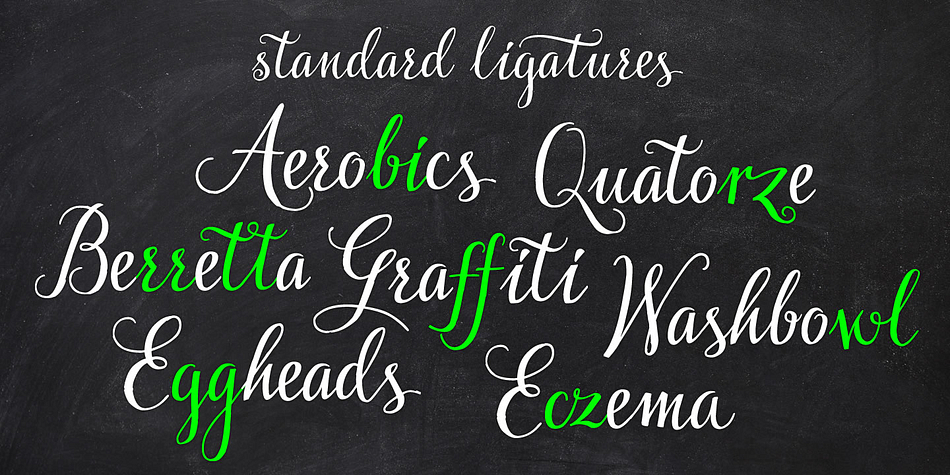 standard ligatures
Aerobics Quatorze
Berretta Graffiti Washbowl
Eggheads Eczema